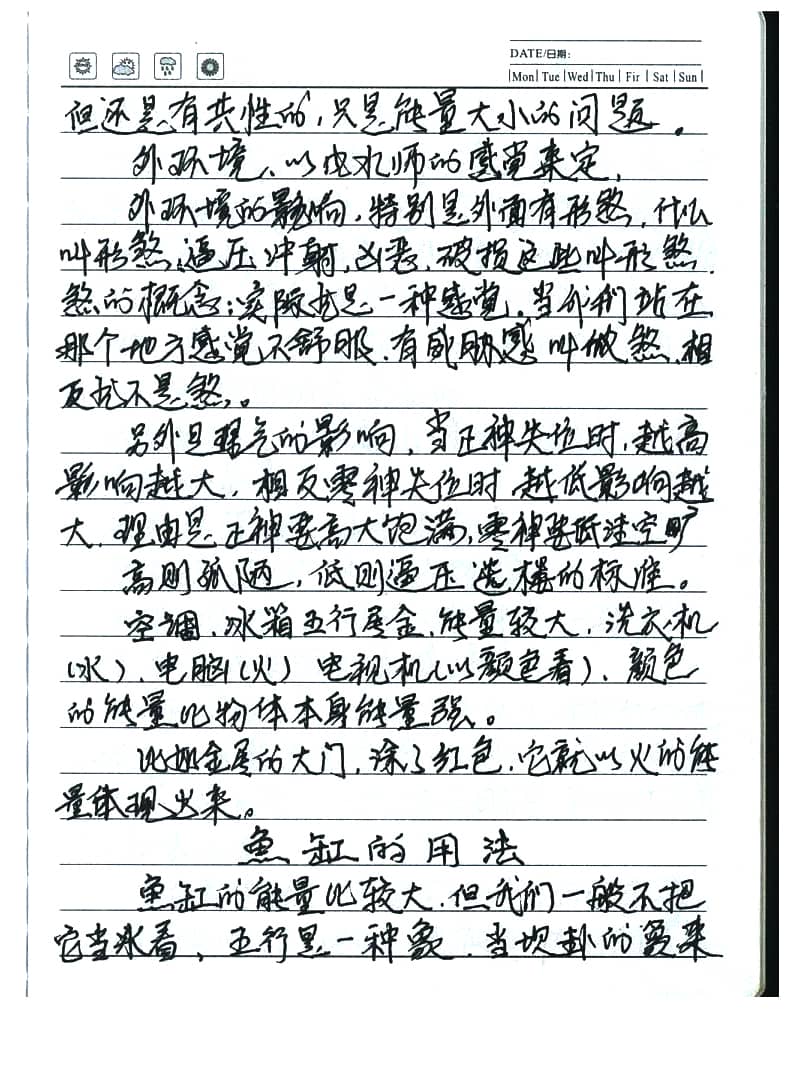 DATE/日期:
Mon Tue Wed Thu Fir Sat Sun
但还是有共性的，只是能量大小的问题。
外环境，以风水师的感觉来定，
外环境的影响，特别是外面有形煞，什么
叫形煞，逼压冲射，凶恶，破损这些叫形煞，
煞的概念：实际就是一种感觉，当我们站在
那个地方感觉不舒服，有威胁感叫做煞，相
反就不是煞。
另外是理气的影响，当正神失位时，越高
影响越大，相反零神失位时越低影响越
大，理由是正神要高大饱满，零神要低洼空旷
高则孤陋，低则逼压选楼的标准。
空调，冰箱五行属金，能量较大，洗衣机
(水)，电脑(火) 电视机(以颜色看)，颜色
的能量比物体本身能量强。
比如金属的大门，涂了红色，它就以火的能
量体现出来。
鱼缸的用法
鱼缸的能量比较大，但我们一般不把
它当水看，五行是一种象，当坎卦的象来